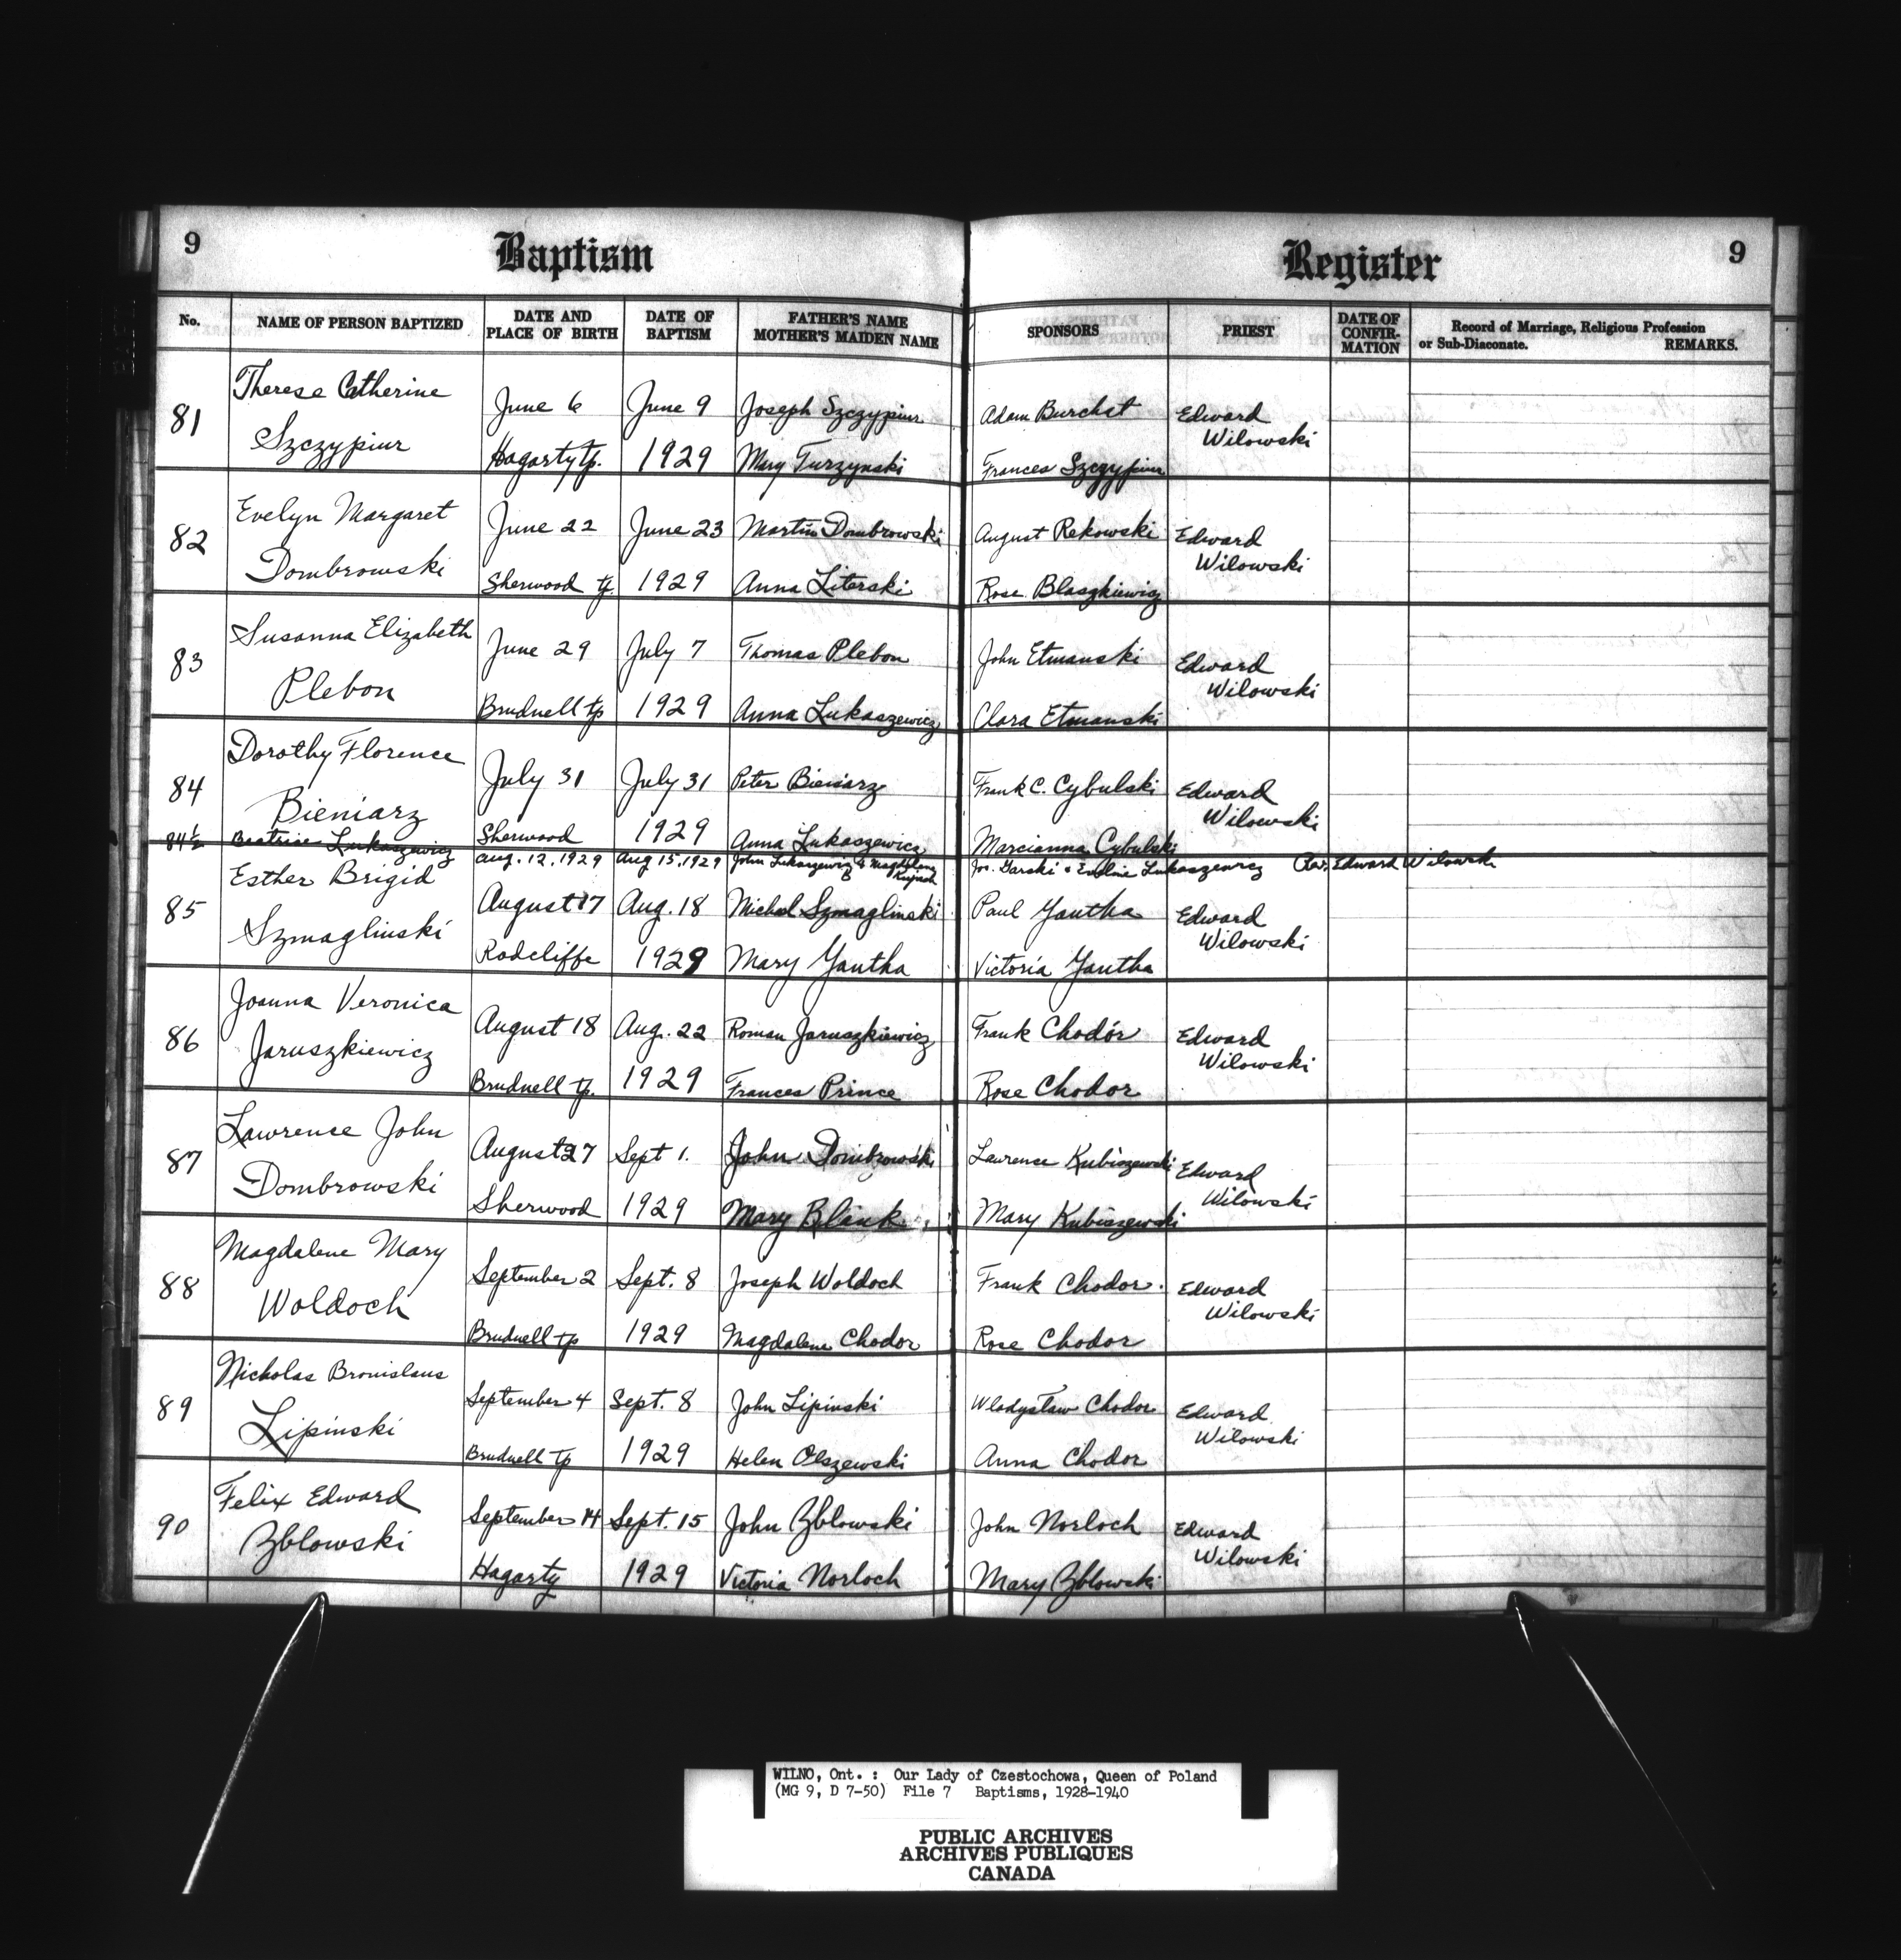 9 Baptism Register 9
No. NAME OF PERSON BAPTIZED DATE AND PLACE OF BIRTH DATE OF BAPTISM FATHER'S NAME MOTHER'S MAIDEN NAME SPONSORS PRIEST DATE OF CONFIRMATION Record of Marriage, Religious Profession or Sub-Diaconate. REMARKS.
Therese Catherine
81 June 6 June 9 Joseph Szczypiur Adam Burchat Edward
Szczypiur Wilowski
Hagarty tp. 1929 Mary Turzynski Frances Szczypiur
Evelyn Margaret
82 June 22 June 23 Martin Dombrowski August Rekowski Edward
Dombrowski Wilowski
Sherwood tp. 1929 Anna Literski Rose Blaszkiewicz
Susanna Elizabeth
83 June 29 July 7 Thomas Plebon John Etmanski Edward
Plebon Wilowski
Brudnell tp 1929 Anna Lukaszewicz Clara Etmanski
Dorothy Florence
84 July 31 July 31 Peter Bieniarz Frank C. Cybulski Edward
Bieniarz Wilowski
Sherwood 1929 Anna Lukaszewicz Marcianna Cybulski
84½ Beatrice Lukaszewicz Aug. 12, 1929 Aug 15, 1929 John Lukaszewicz & Magdalena Jos. Garski & Evoline Lukaszewicz Rev. Edward Wilowski
Esther Brigid
85 August 17 Aug. 18 Michael Szmaglinski Paul Yantha Edward
Szmaglinski Wilowski
Radcliffe 1929 Mary Yantha Victoria Yantha
Joanna Veronica
86 August 18 Aug. 22 Roman Jaruszkiewicz Frank Chodór Edward
Jaruszkiewicz Wilowski
Brudnell tp. 1929 Frances Prince Rose Chodor
Lawrence John
87 August 27 Sept 1. John Dombrowski Lawrence Kubiszewski Edward
Dombrowski Wilowski
Sherwood 1929 Mary Blank Mary Kubiszewski
Magdalene Mary
88 September 2 Sept. 8 Joseph Woldoch Frank Chodor Edward
Woldoch Wilowski
Brudnell tp 1929 Magdalene Chodor Rose Chodor
Nicholas Bronislaus
89 September 4 Sept. 8 John Lipinski Wladysław Chodor Edward
Lipinski Wilowski
Brudnell tp 1929 Helen Olszewski Anna Chodor
Felix Edward
90 September 14 Sept. 15 John Zblowski John Norloch Edward
Zblowski Wilowski
Hagarty 1929 Victoria Norloch Mary Zblowski
WILNO, Ont. : Our Lady of Czestochowa, Queen of Poland
(MG 9, D 7-50) File 7 Baptisms, 1928-1940
PUBLIC ARCHIVES
ARCHIVES PUBLIQUES
CANADA